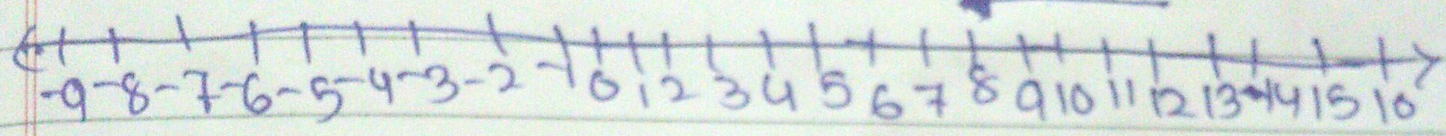 -9 -8 -7 -6 -5 -4 -3 -2 -1 0 1 2 3 4 5 6 7 8 9 10 11 12 13 14 15 16